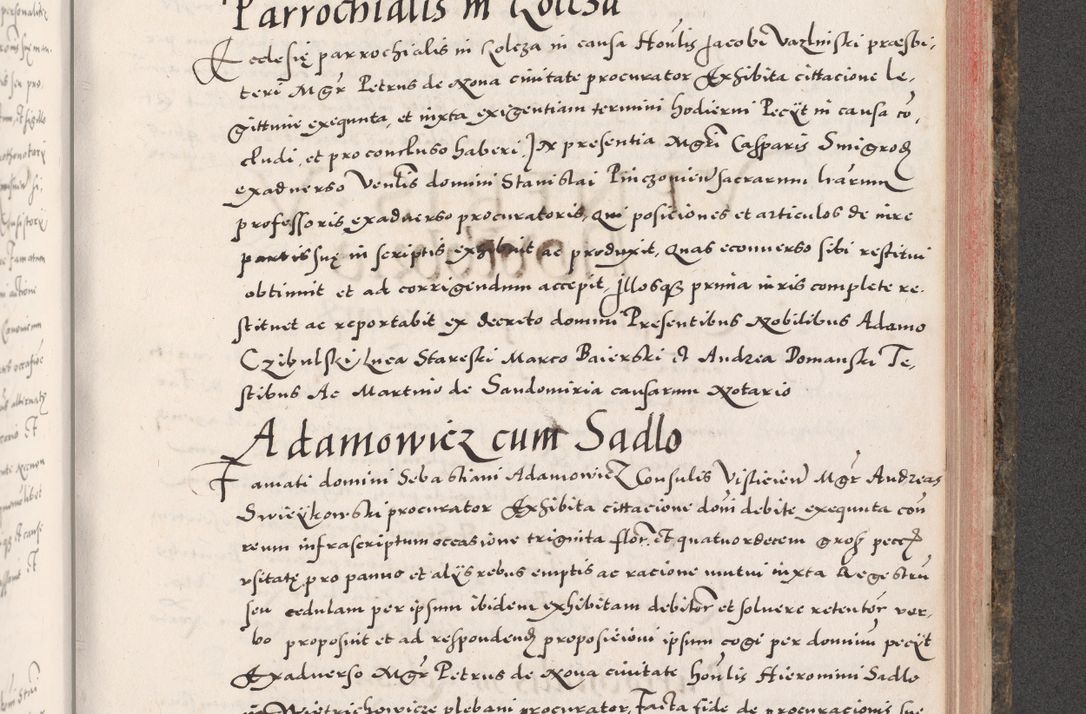 Parrochialis in Kolcza
Ecclesię parrochialis in Kolcza in causa Honlis Jacobi Vazlinski præsbi,
teri Mgr Petrus de Nova civitate procurator Exhibita cittacione le,
gittime exequuta, et iuxta exigentiam termini hodierni Pecÿt in causa co,
cludi, et pro concluso haberi. In presentia Mgri Casparis Smigrod
exadverso Venlis domini Stanislai Pinczovien sacrarum lrarum
professoris exadverso procuratoris, Qui posiciones et articulos de iure
partis suę in scriptis exhibuit ac produxit, Quas econverso sibi restitui
obtinuit et ad corrigendum accepit, Illosque prima iuris complete re-
stituet ac reportabit ex decreto domini Presentibus Nobilibus Adamo
Czibulski Luca Stareski Marco Baierski et Andrea Domanski Te-
stibus Ac Martino de Sandomiria causarum Notario
Adamowicz cum Sadlo
Famati domini Sebastiani Adamowicz Consulis Visliciem Mgr Andreas
Swieÿkowski procurator Exhibita cittacione domi debite exequuta con
reum infrascriptum occasione triginta flor. et quatuordecem gross pecc
usitatę pro panno et alÿs rebus emptis ac racione mutui iuxta Regestrū
seu cedulam per ipsum ibidem exhibitam debitor et solvere retentor ver,
bo proposuit et ad respondend proposicioni ipsum cogi per dominum pecÿt
Exadverso Mgr Petrus de Nova civitate honlis Hieronimi Sadlo
Wietrichowicze plebani procurator, Facta fide de procuracionis sue